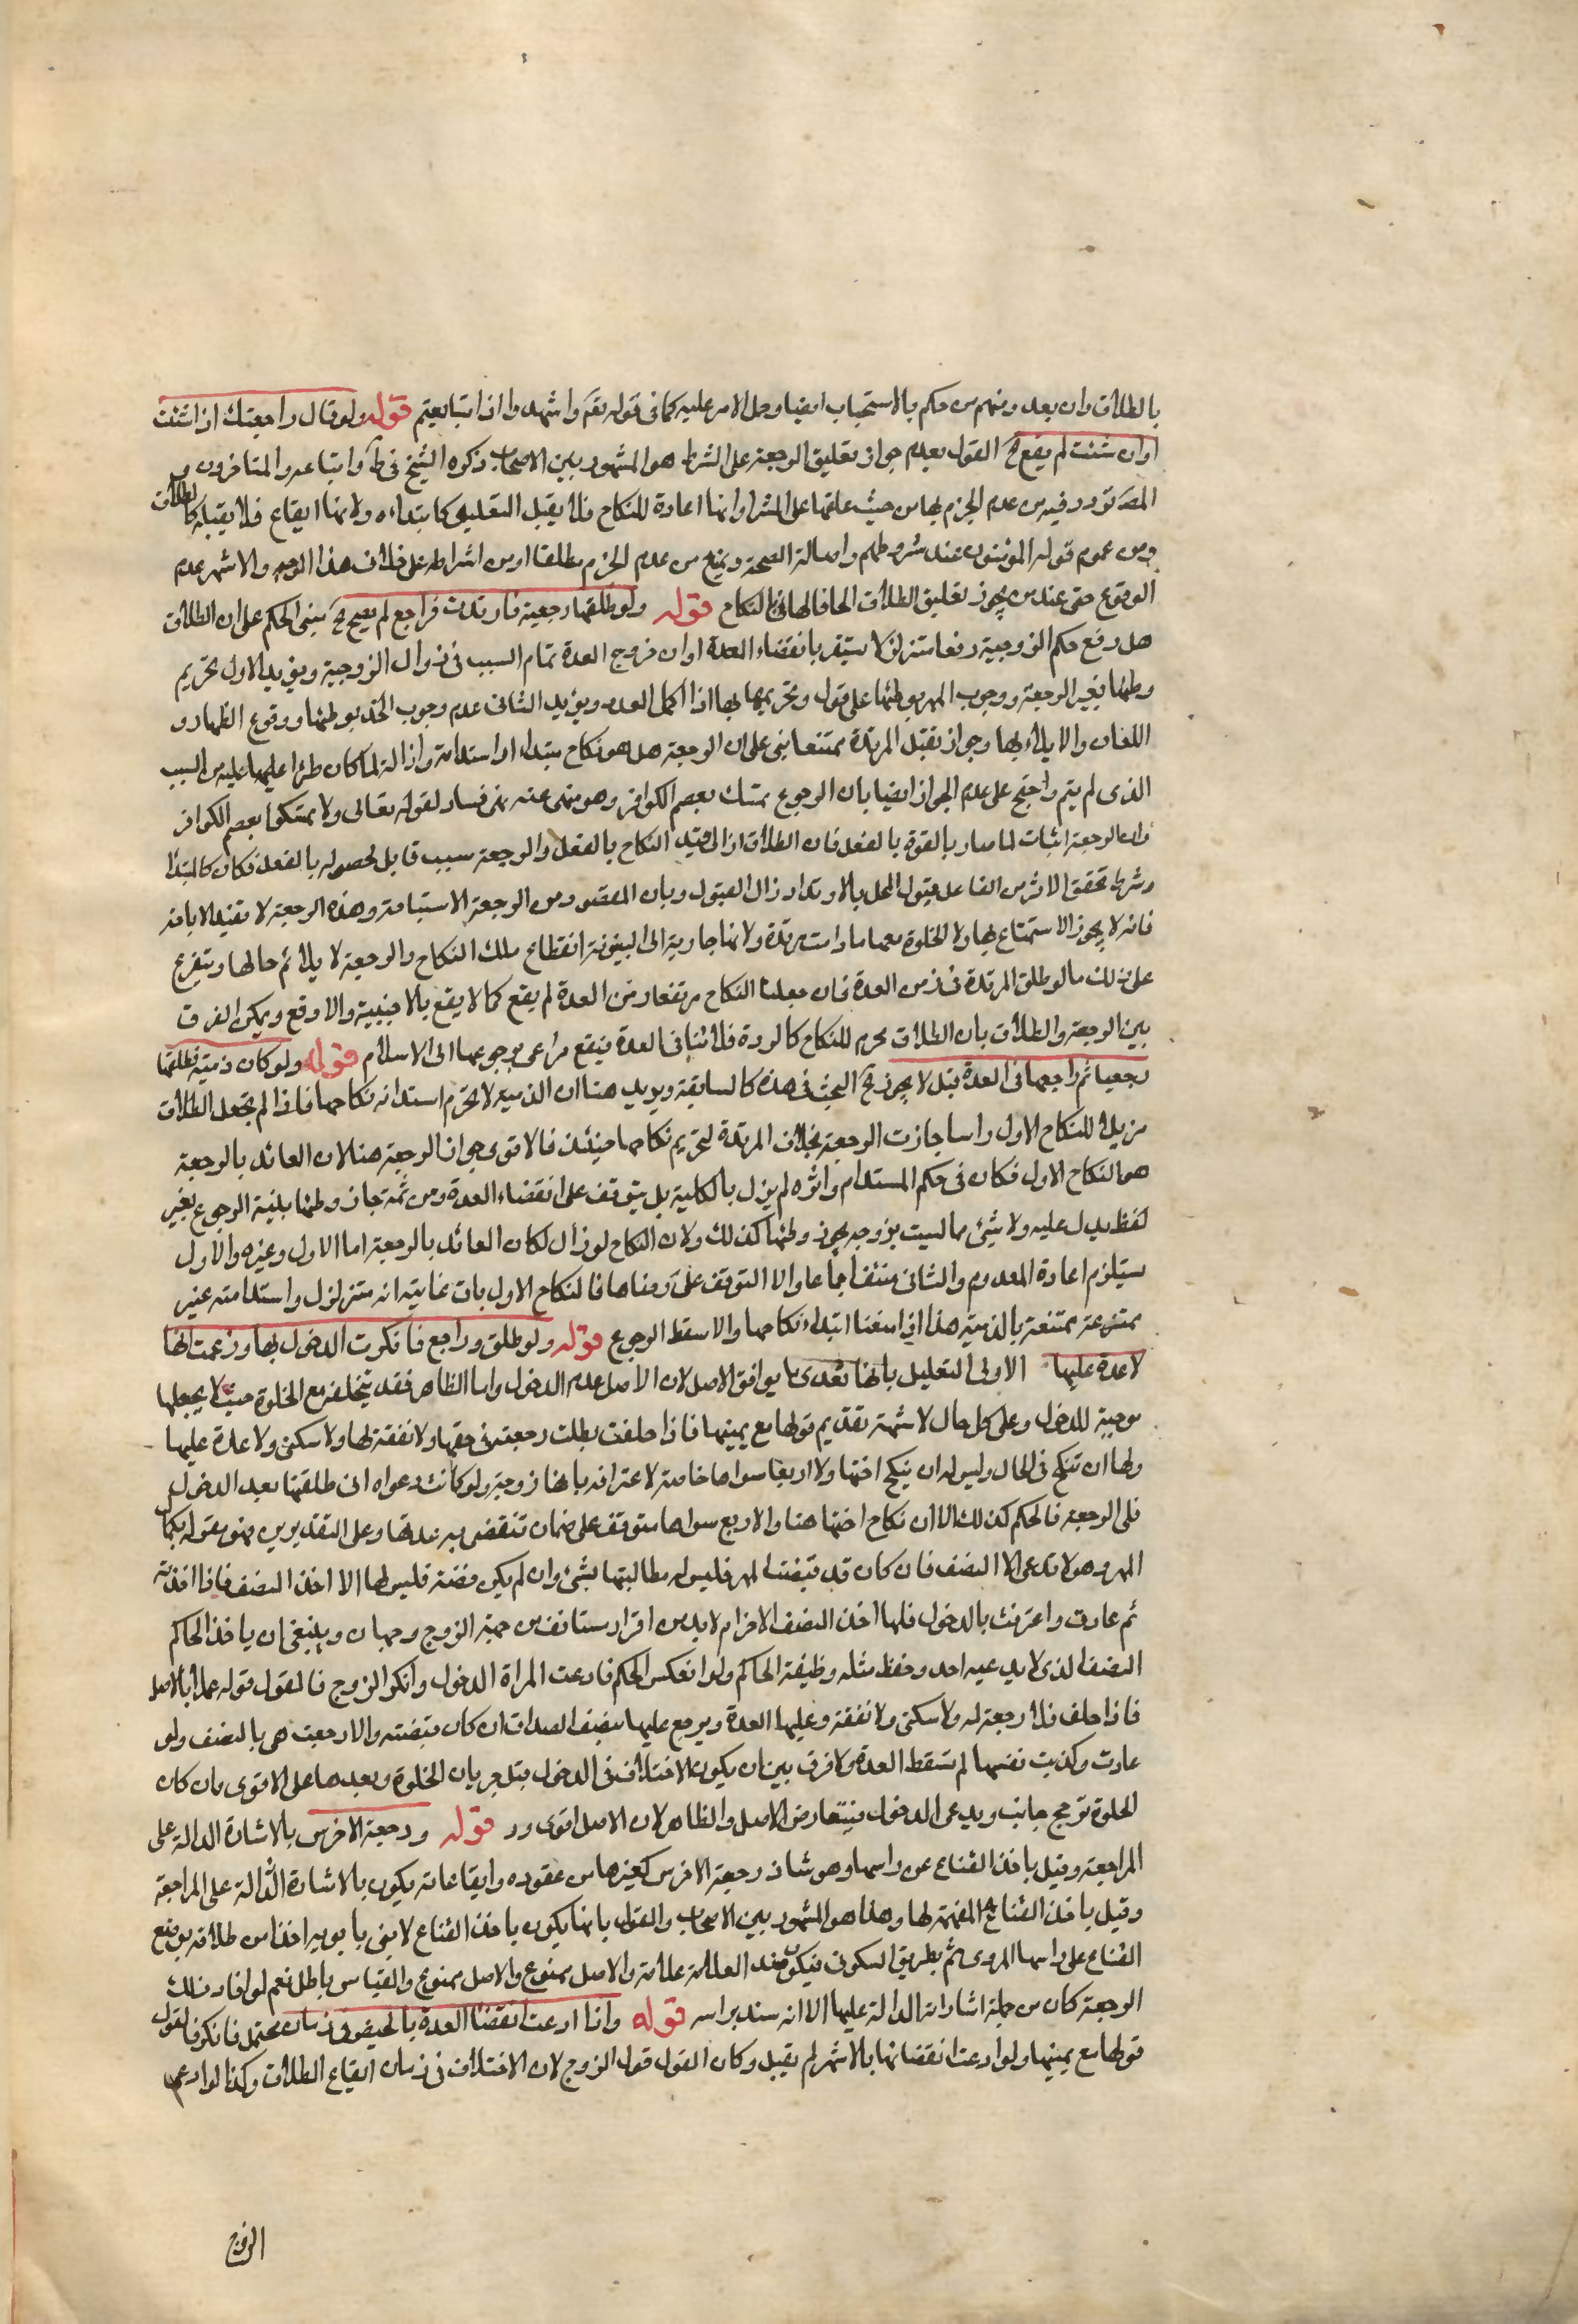 بالطلاق وان بعد ومنهم من حكم بالاستحباب ايضا وحمل الامر عليه كما فى قوله تعم واشهدوا اذا تبايعتم قوله ولو قال راجعتك اذا شئت
او ان شئت لم يقع الخ القول بعدم جواز تعليق الرجعة على الشرط هو المشهور بين الاصحاب ذكره الشيخ فى ط واتباعه والمتاخرون و
المصَ تردد فيه من عدم الجزم بها من حيث علقها على الشرط وانها اعادة للنكاح فلا يقبل التعليق كابتداءه ولانها ايقاع فلا يقبله كالطلاق
ومن عموم قوله المؤمنون عند شروطهم واصالة الصحة ويمنع من عدم الجزم مطلقا او من اشتراطه على خلاف هذا الوجه والاشهر عدم
الوقوع حتى عند من يجوز تعليق الطلاق الحاقا لها بالنكاح قوله ولو طلقها رجعية فارتدت فراجع لم يصح الخ يبنى الحكم على ان الطلاق
هل رفع حكم الزوجية رفعا متزلزلا يستقر بانقضاء العدة او ان خروج العدة تمام السبب فى زوال الزوجية ويؤيد الاول تحريم
وطئها بغير الرجعة ووجوب المهر بوطئها على قول وتحريمها بها اذا اكمل العدد ويؤيد الثانى عدم وجوب الحد بوطئها ووقوع الظهار و
اللعان والايلاء بها وجواز تقبل المرتدة ممتنعا يبنى على ان الرجعة هل هو نكاح مبتداء او استدامة وازالة لما كان طرا عليها عليه من السبب
الذى لم يتم واحتج على عدم الجواز ايضا بان الرجوع تمسك بعصم الكوافر وهو منهى عنه نهى فساد لقوله تعالى ولا تمسكوا بعصم الكوافر
وان الرجعة اثبات لما صار بالقوة بالفعل فان الطلاق ازال قيد النكاح بالفعل والرجعة سبب قابل لحصوله بالفعل فكان كالمبتدأ
وشرط تحقق الاثر من الفاعل قبول المحل بالارتداد زال القبول وبان المقصود من الرجعة الاستباحة وهذه الرجعة لا تفيد الاباحة
فانه لا يجوز الاستمتاع بها ولا الخلوة معها ما دامت مرتدة ولانها جارية الى البينونة انقطاع ملك النكاح والرجعة لا يلائم حالها ويتفرع
على ذلك ما لو طلق المرتدة فى زمن العدة فان جعلنا النكاح مرتفعا زمن العدة لم يقع كما لا يقع بالاجنبية والا وقع ويمكن الفرق
بين الرجعة والطلاق بان الطلاق محرم للنكاح كالردة فلا تنافى العدة فيقع مراعى برجوعها الى الاسلام قوله ولو كان ذمية فطلقها
رجعيا ثم راجعها فى العدة قيل لا يجوز الخ البحث فى هذه كالسابقة ويؤيد هنا ان الذمية لا تحرم استدامة نكاحها فاذا لم يجعل الطلاق
مزيلا للنكاح الاول راسا جازت الرجعة بخلاف المرتدة لتحريم نكاحها حينئذ فالاقوى جواز الرجعة هنا لان العائد بالرجعة
هو النكاح الاول فكان فى حكم المستدام واثره لم يزل بالكلية بل يتوقف على انقضاء العدة ومن ثمة جاز وطئها بلنية الرجوع بغير
لفظ يدل عليه ولا شئ مما ليست بزوجة يجوز وطئها كذلك ولان النكاح لو زال لكان العائد بالرجعة اما الاول وغيره والاول
يستلزم اعادة المعدوم والثانى منتف اجماعا والا التوقف على رضاها فالنكاح الاول باق غايته انه متزلزل واستدامته غير
ممتنعة بالذمية هذا اذا منعنا ابتداء نكاحها والا سقط الرجوع قوله ولو طلق وراجع فانكرت الدخول بها وزعمت انها
لا عدة عليها الاولى التعليل بانها تدعى ما يوافق الاصل لان الاصل عدم الدخول واما الظاهر فقد يتخلف مع الخلوة حيث لا يجعلها
موجبة للدخول وعلى كل حال لا شبهة تقديم قولها مع يمينها فاذا حلفت بطلت رجعته فى حقها ولا نفقة لها ولا سكنى ولا عدة عليها
ولها ان تنكح فى الحال وليس له ان ينكح اختها ولا اربعا سواها خاصة لاعترافه بانها زوجة ولو كانت دعواه انه طلقها بعد الدخول
فله الرجعة فالحكم كذلك الا ان نكاح اختها هنا والاربع سواها متوقف على ضمان تنقضى به عدتها وعلى التقديرين فهو مقر لها بكمال
المهر وهو لا تدعى الا النصف فان كان قد قبضت المهر فليس له مطالبتها بشئ وان لم يكن قبضته فليس لها الا اخذ النصف فاذا اخذته
ثم عادت واعترفت بالدخول فلها اخذ النصف الاخر ام لا بد من اقرار مستانف من جهة الزوج وجهان وينبغى ان ياخذ الحاكم
النصف الذى لا يدعيه احد وحفظ مثله وظيفة الحاكم ولو انعكس الحكم فادعت المراة الدخول وانكر الزوج فالقول قوله عملا بالاصل
فاذا حلف فلا رجعة له ولا سكنى ولا نفقة وعليها العدة ويرجع عليها بنصف الصداق ان كان قبضته والا رجعت هى بالنصف ولو
عادت وكذبت نفسها لم تسقط العدة ولا فرق بين ان يكون الاختلاف فى الدخول قبل جريان الخلوة وبعدها على الاقوى وان كان
الخلوة ترجح جانب ويدعى الدخول فيتعارض الاصل والظاهر لان الاصل اقوى ود قوله ورجعة الاخرس بالاشارة الدالة على
المراجعة وقيل باخذ القناع عن راسها وهو شاذ رجعة الاخرس كغيرها من عقوده وايقاعاته يكون بالاشارة الدالة على المراجعة
وقيل باخذ القناع المفهمة لها وهذا هو المشهور بين الاصحاب والقول بانها يكون باخذ القناع لابنى بابويه اخذا من طلاقه بوضع
القناع على راسها المروى ثم بطريق السكونى فيكون ضد العلامة علامة والاصل ممنوع والاصل ممنوع والقياس باطل نعم لو افاد ذلك
الرجعة كان من جملة اشاراته الدالة عليها الا انه سند براسه قوله واذا ادعت انقضاء العدة بالحيض فى زمان محتمل فانكر فالقول
قولها مع يمينها ولو ادعت انقضائها بالاشهر لم يقبل وكان القول قول الزوج لان الاختلاف فى زمان ايقاع الطلاق وكذا لو ادعى
الزوج